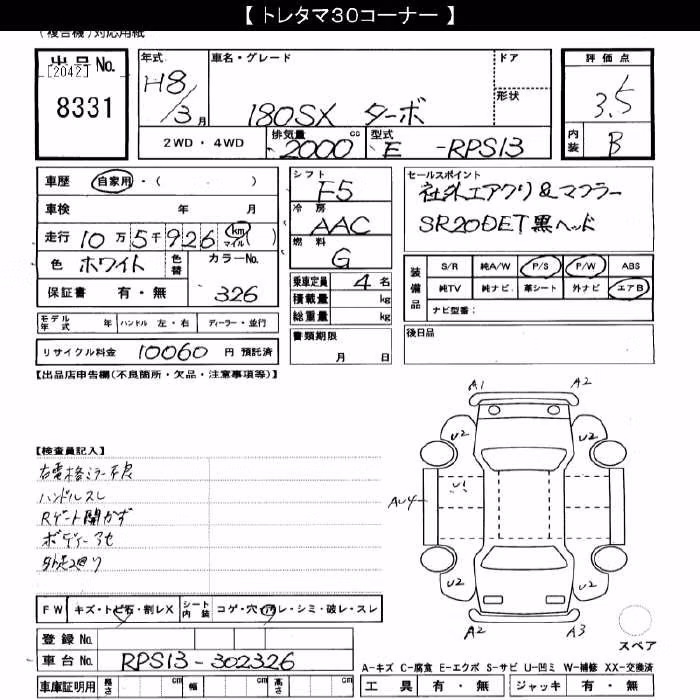 【 トレタマ30コーナー 】
(複合機)対応用紙
出品No. [2042] 8331
年式 H8/3月
車名・グレード 180SX ターボ
ドア
形状
評価点 3.5
内装 B
2WD・4WD
排気量 2000 cc
型式 E -RPS13
車歴 自家用・( )
車検 年 月
走行 10万5千926 km マイル ( )
色 ホワイト 色替 カラーNo. 326
保証書 有・無
シフト F5
冷房 AAC
燃料 G
乗車定員 4名
積載量 kg
総重量 kg
書類期限
月 日
セールスポイント
社外エアクリ&マフラー
SR20DET黒ヘッド
装備品
S/R 純A/W P/S P/W ABS
純TV 純ナビ 革シート 外ナビ エアB
ナビ型番:
後日品
モデル年式 年 ハンドル 左・右 ディーラー・並行
リサイクル料金 10060 円 預託済
【出品店申告欄(不良箇所・欠品・注意事項等)】
【検査員記入】
右電格ミラー不良
ハンドルスレ
Rゲート開かず
ボディーアセ
外足廻り
A1 A2
U2 U2
U1
AU4
U2 U2
A2 A3
スペア
FW キズ・トビ石・割レX シート内装 コゲ・穴・汚レ・シミ・破レ・スレ
登録No.
車台No. RPS13-302326
車庫証明用 長さ cm 幅 cm 高さ cm
A-キズ C-腐食 E-エクボ S-サビ U-凹ミ W-補修 XX-交換済
工具 有・無 ジャッキ 有・無